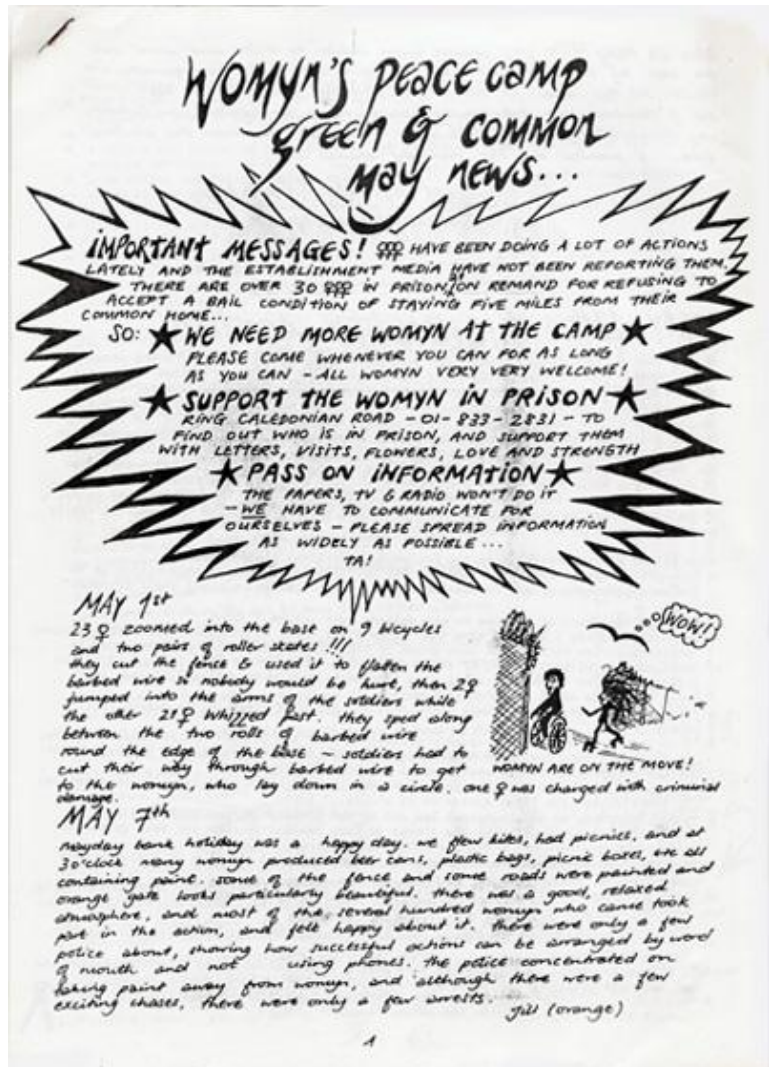 WOMYN'S PEACE CAMP
green & COMMON
May NEWS...
IMPORTANT MESSAGES! ♀♀♀ HAVE BEEN DOING A LOT OF ACTIONS
LATELY AND THE ESTABLISHMENT MEDIA HAVE NOT BEEN REPORTING THEM.
THERE ARE OVER 30 ♀♀♀ IN PRISON ON REMAND FOR REFUSING TO
ACCEPT A BAIL CONDITION OF STAYING FIVE MILES FROM THEIR
COMMON HOME...
SO: ★ WE NEED MORE WOMYN AT THE CAMP ★
PLEASE COME WHENEVER YOU CAN FOR AS LONG
AS YOU CAN - ALL WOMYN VERY VERY WELCOME!
★ SUPPORT THE WOMYN IN PRISON ★
RING CALEDONIAN ROAD - 01-833-2831 - TO
FIND OUT WHO IS IN PRISON, AND SUPPORT THEM
WITH LETTERS, VISITS, FLOWERS, LOVE AND STRENGTH
★ PASS ON INFORMATION ★
THE PAPERS, TV & RADIO WON'T DO IT
- WE HAVE TO COMMUNICATE FOR
OURSELVES - PLEASE SPREAD INFORMATION
AS WIDELY AS POSSIBLE...
TA!
MAY 1st
23 ♀ zoomed into the base on 9 bicycles
and two pairs of roller skates !!!
they cut the fence & used it to flatten the
barbed wire so nobody would be hurt, then 2♀
jumped into the arms of the soldiers while
the other 21♀ whizzed past. they sped along
between the two rolls of barbed wire
round the edge of the base ~ soldiers had to
cut their way through barbed wire to get
to the womyn, who lay down in a circle. one ♀ was charged with criminal
damage.
WOW!
WOMYN ARE ON THE MOVE!
MAY 7th
mayday bank holiday was a happy day. we flew kites, had picnics, and at
3 o'clock many womyn produced beer cans, plastic bags, picnic boxes, etc all
containing paint. some of the fence and some roads were painted and
orange gate looks particularly beautiful. there was a good, relaxed
atmosphere, and most of the several hundred womyn who came took
part in the action, and felt happy about it. there were only a few
police about, showing how successful actions can be arranged by word
of mouth and not using phones. the police concentrated on
taking paint away from womyn, and although there were a few
exciting chases, there were only a few arrests.
Jill (orange)
1